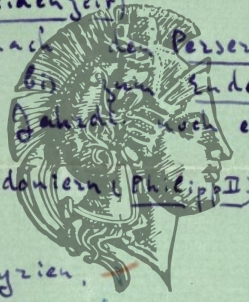 idenzeit,
nach den Perser
bis zum Ende
Jahrdt noch e
doniern (Philipp II)
yrien,